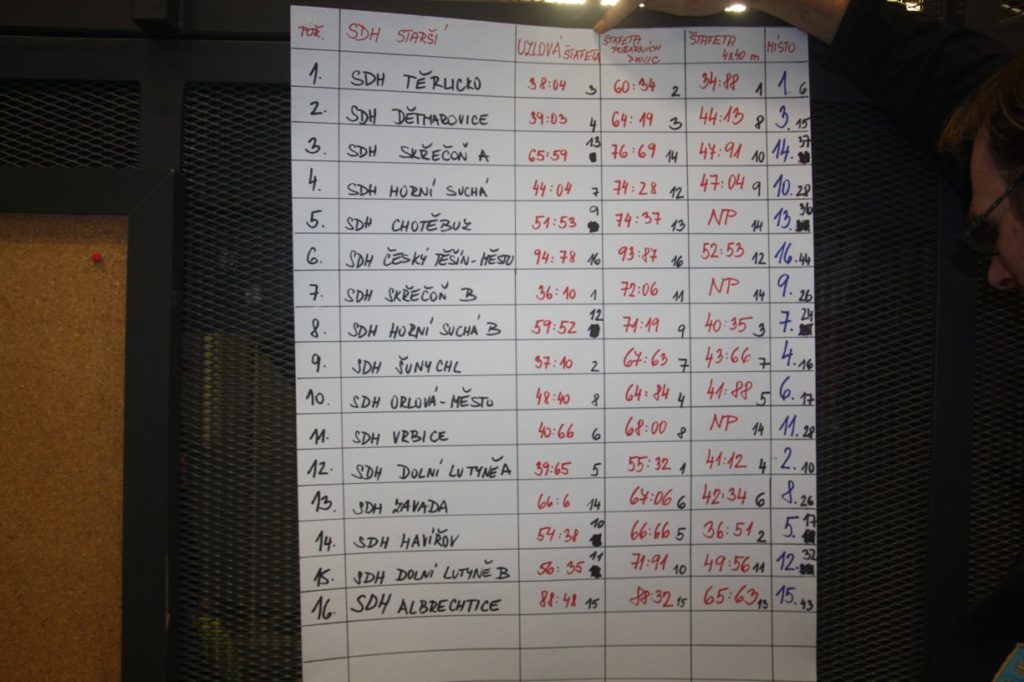 POŘ. SDH STARŠÍ UZLOVÁ ŠTAFETA ŠTAFETA POŽÁRNÍCH DVOJIC ŠTAFETA 4x40 m MÍSTO
1. SDH TĚRLICKO 38:04 3 60:34 2 34:88 1 1. 6
2. SDH DĚTMAROVICE 39:03 4 64:19 3 44:13 8 3. 15
3. SDH SKŘEČOŇ A 65:59 13 76:69 14 47:91 10 14. 37
4. SDH HORNÍ SUCHÁ 44:04 7 74:28 12 47:04 9 10. 28
5. SDH CHOTĚBUZ 51:53 9 74:37 13 NP 14 13. 36
6. SDH ČESKÝ TĚŠÍN-MĚSTO 94:78 16 93:87 16 52:53 12 16. 44
7. SDH SKŘEČOŇ B 36:10 1 72:06 11 NP 14 9. 26
8. SDH HORNÍ SUCHÁ B 59:52 12 71:19 9 40:35 3 7. 24
9. SDH ŠUNYCHL 37:10 2 67:63 7 43:66 7 4. 16
10. SDH ORLOVÁ-MĚSTO 48:40 8 64:84 4 41:88 5 6. 17
11. SDH VRBICE 40:66 6 68:00 8 NP 14 11. 28
12. SDH DOLNÍ LUTYNĚ A 39:65 5 55:32 1 41:12 4 2. 10
13. SDH ZAVADA 66:6 14 67:06 6 42:34 6 8. 26
14. SDH HAVÍŘOV 54:38 10 66:66 5 36:51 2 5. 17
15. SDH DOLNÍ LUTYNĚ B 56:35 11 71:91 10 49:56 11 12. 32
16. SDH ALBRECHTICE 88:48 15 88:32 15 65:63 13 15. 43